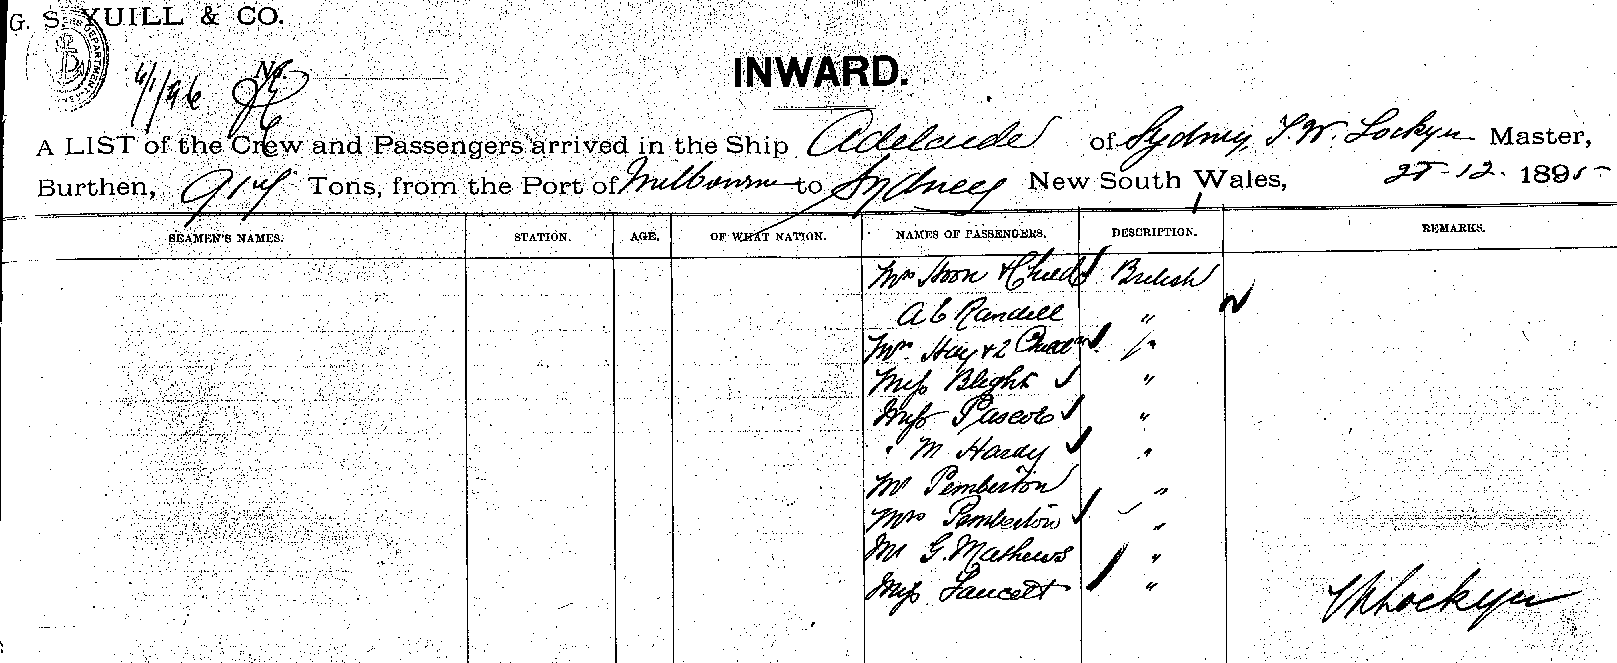 G. S. YUILL & CO.
6/1/96
No.
INWARD.
A LIST of the Crew and Passengers arrived in the Ship Adelaide of Sydney, T. W. Lockyer Master,
Burthen, Tons, from the Port of Melbourne to Sydney New South Wales, -12- 1895
SEAMEN'S NAMES. STATION. AGE. OF WHAT NATION. NAMES OF PASSENGERS. DESCRIPTION. REMARKS.
Mrs & Child British
A C Randell "
Mrs Hay & 2 "
Miss Blight "
Miss Pascoe "
" M Hardy "
Mr Pemberton "
Mrs Pemberton "
Mr G. Mathews "
Miss Faucett "
Lockyer